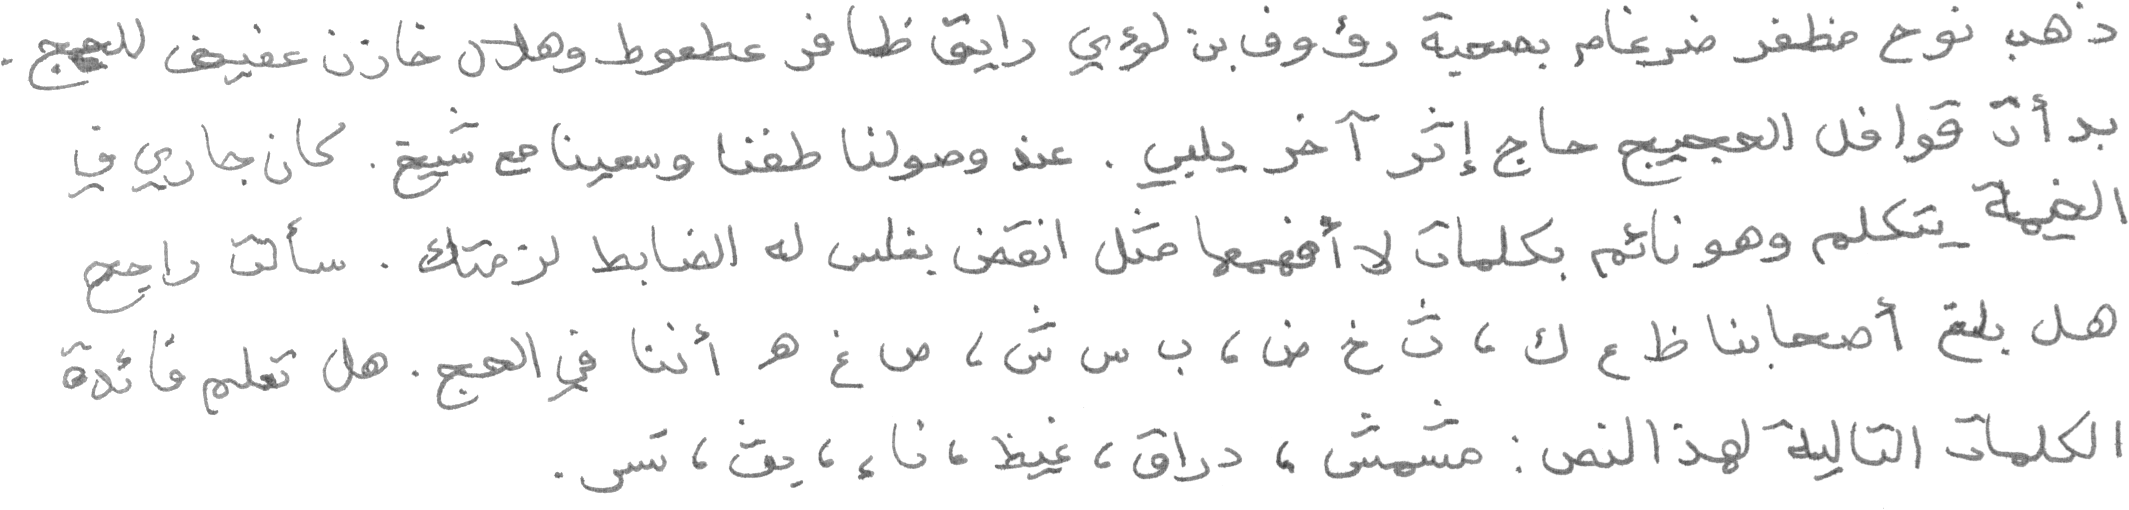 ذهب نوح مظفر ضرغام بصحبة رؤوف بن لؤي رايق ظافر عطعوط وهلال خازن عفيف للحج .
بدأت قوافل الحجيج حاج إثر آخر يلبي . عند وصولنا طفنا وسعينا مع شيخ . كان جاري في
الخيمة يتكلم وهو نائم بكلمات لا أفهمها مثل انقض بغلس له الضابط لزمتك . سألت راجح
هل بلغ أصحابنا ظ ع ك ، ث خ ض ، ب س ش ، ص غ ه أننا في الحج . هل تعلم فائدة
الكلمات التالية لهذا النص : مشمش ، دراق ، غيظ ، ناء ، يقث ، تسس .